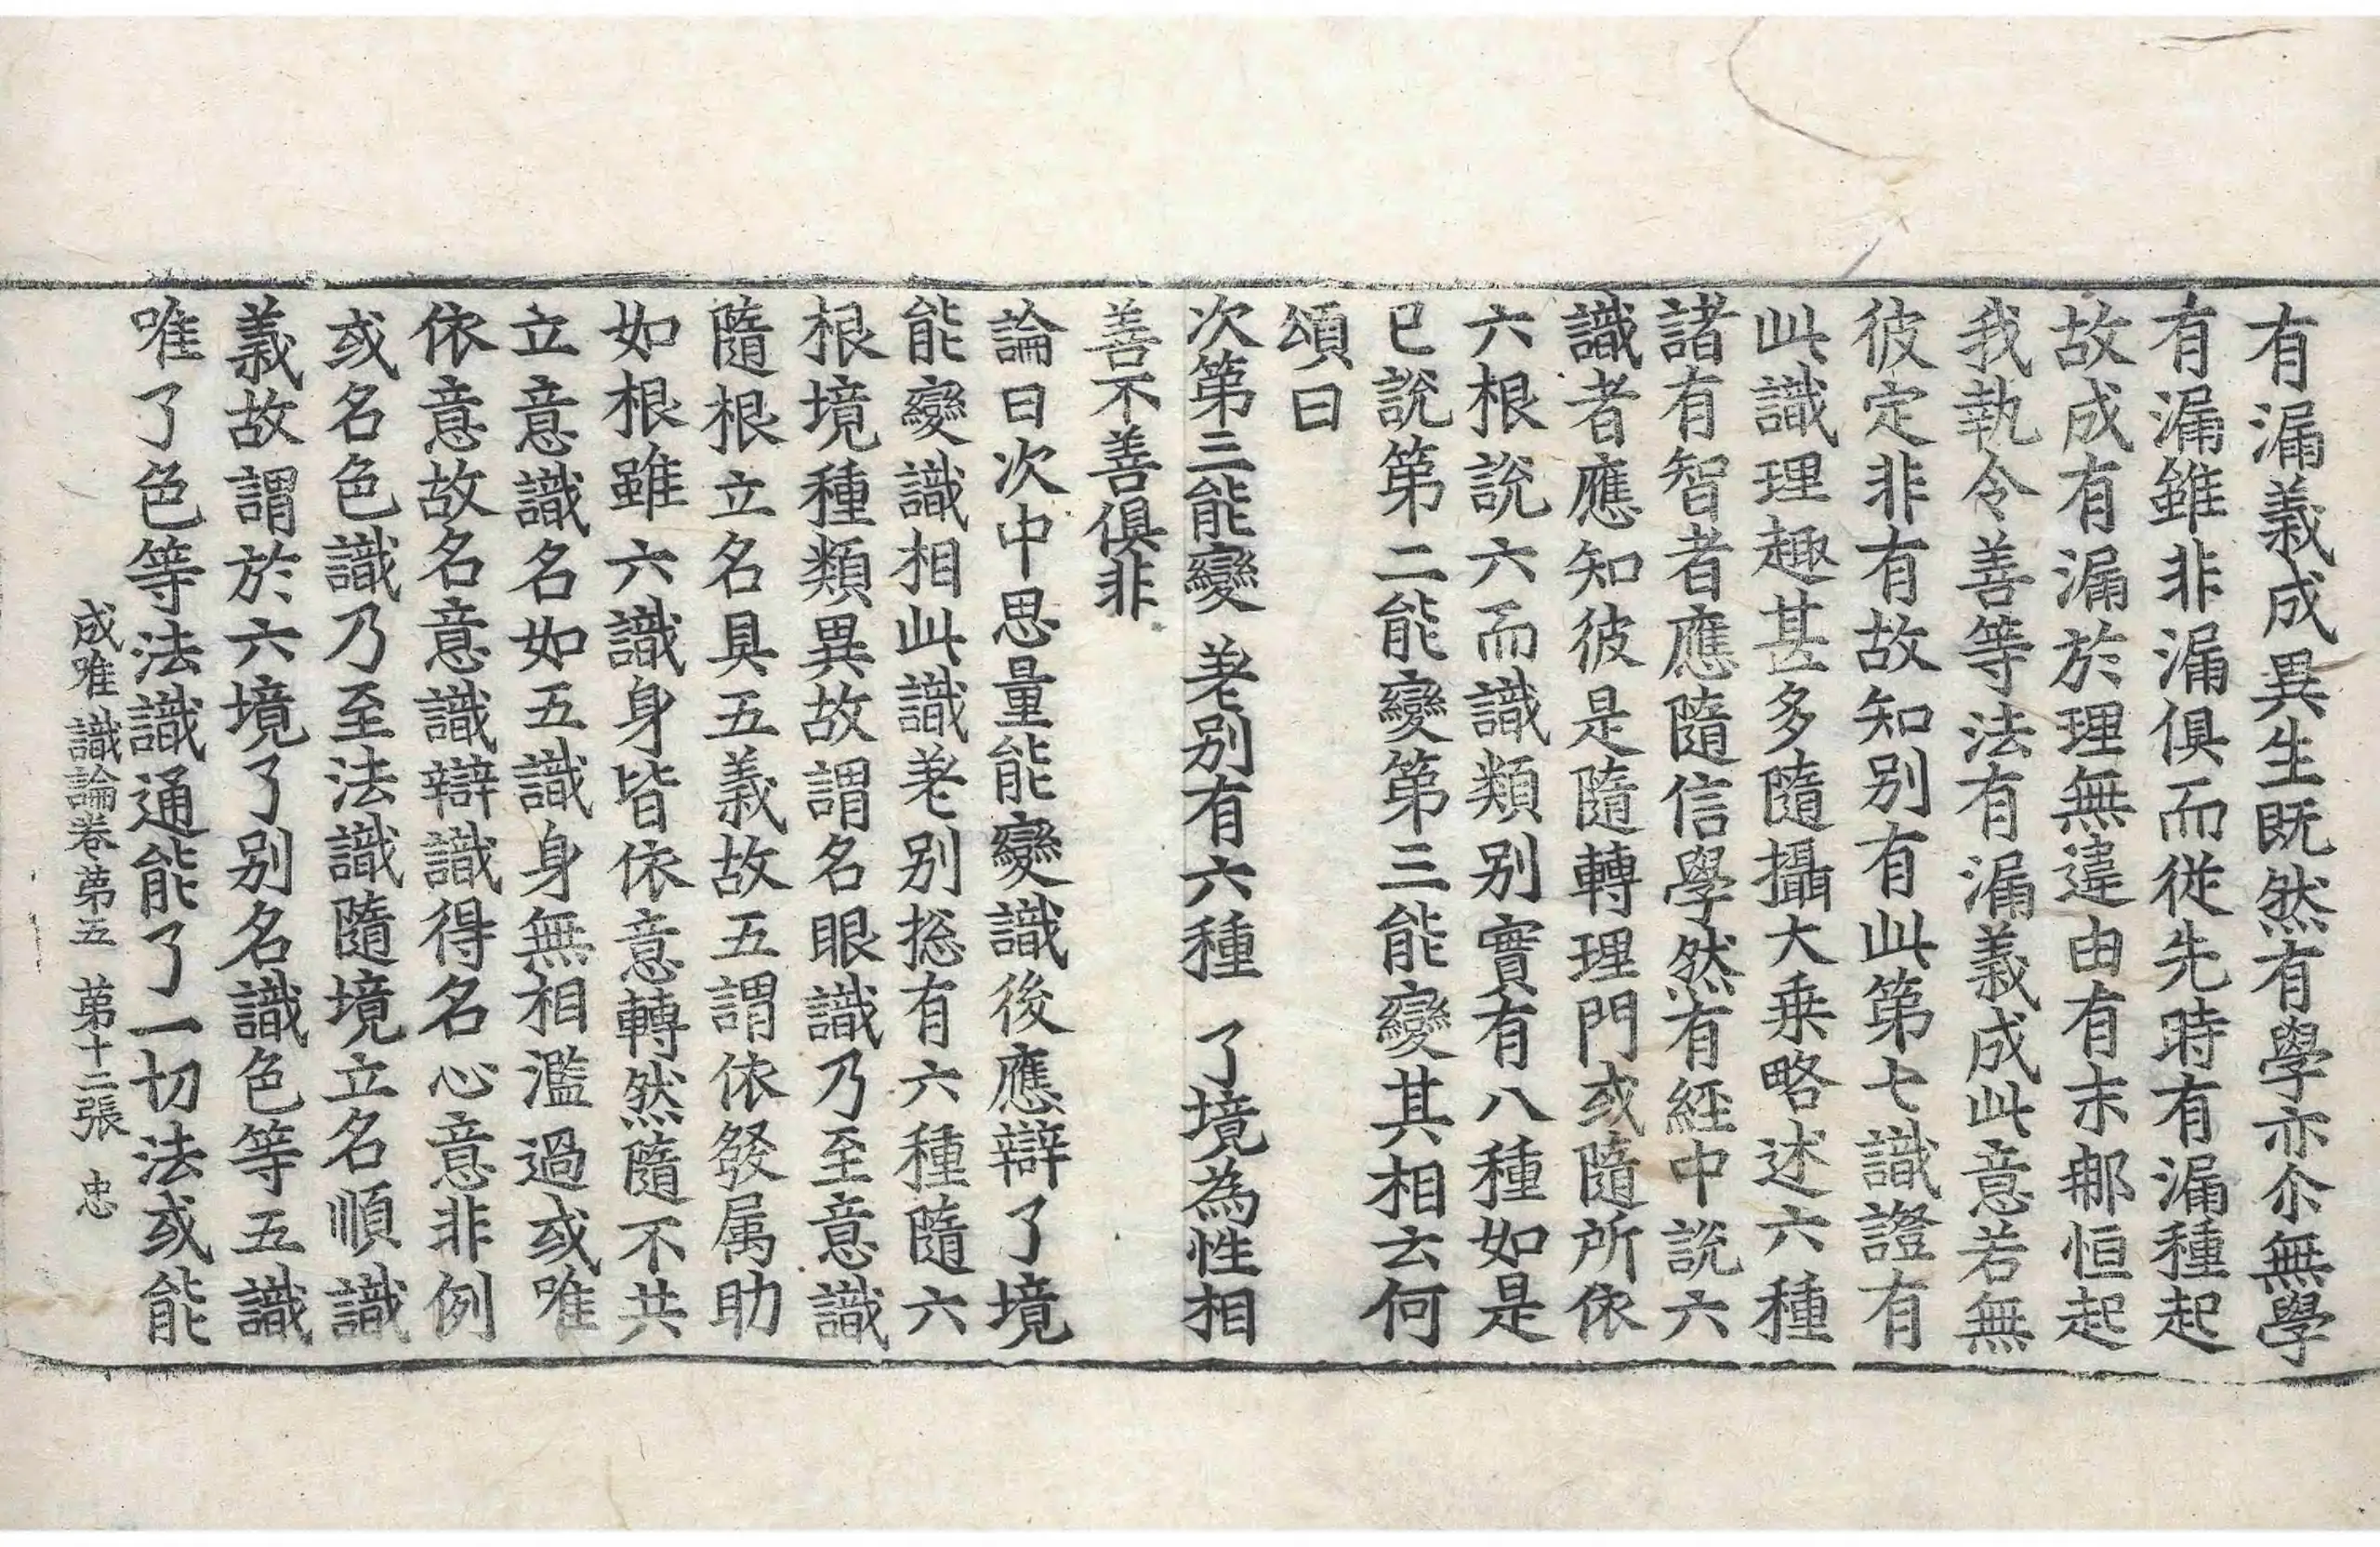 有漏義成異生既然有學亦尒無學
有漏雖非漏俱而從先時有漏種起
故成有漏於理無違由有末郍恒起
我執令善等法有漏義成此意若無
彼定非有故知別有此第七識證有
此識理趣甚多隨攝大乗略述六種
諸有智者應隨信學然有經中說六
識者應知彼是隨轉理門或隨所依
六根說六而識類別實有八種如是
已說第二能變第三能變其相云何
頌曰
次第三能變 差別有六種 了境為性相
善不善俱非
論曰次中思量能變識後應辯了境
能變識相此識差別揔有六種隨六
根境種類異故謂名眼識乃至意識
隨根立名具五義故五謂依發属助
如根雖六識身皆依意轉然隨不共
立意識名如五識身無相濫過或唯
依意故名意識辯識得名心意非例
或名色識乃至法識隨境立名順識
義故謂於六境了別名識色等五識
唯了色等法識通能了一切法或能
成唯識論卷第五 第十二張 忠